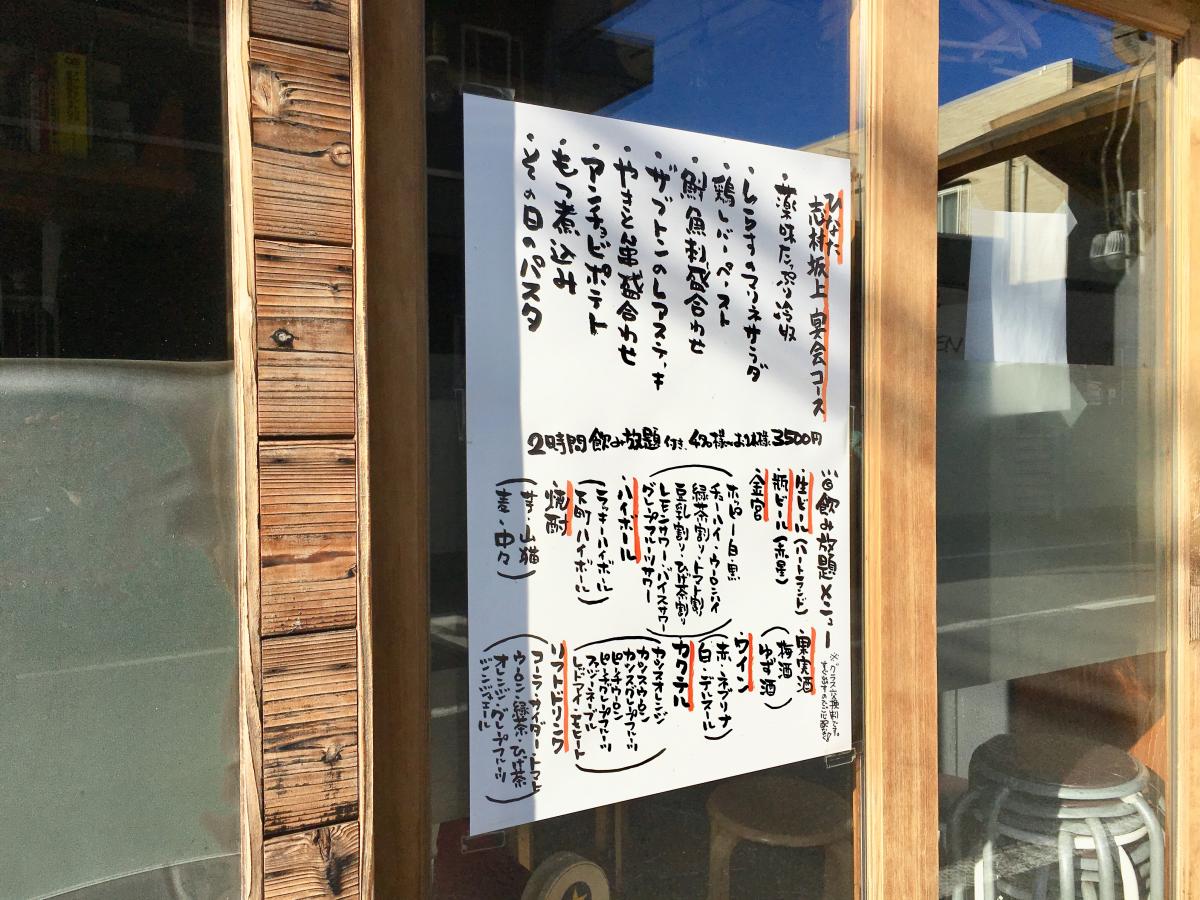 ひなた
志村坂上 宴会コース
・薬味たっぷり冷奴
・しらすのマリネサラダ
・鶏レバーペースト
・鮮魚刺盛合わせ
・ザブトンのレアステーキ
・やきとん串盛合わせ
・アンチョビポテト
・もつ煮込み
・その日のパスタ
2時間飲み放題付き、4名様〜お1人様3500円
飲み放題メニュー
※グラス交換制です。
・生ビール(ハートランド)
・瓶ビール(赤星)
・金宮
ホッピー白・黒
チューハイ・ウーロンハイ
緑茶割り・トマト割り
豆乳割り・ひげ茶割り
レモンサワー・バイスサワー
グレープフルーツサワー
・ハイボール
ラッキーハイボール
下町ハイボール
・焼酎
芋・山猫
麦・中々
・果実酒
梅酒
ゆず酒
・ワイン
赤・ネブリナ
白・デルスール
・カクテル
カシスオレンジ
カシスウーロン
カシスグレープフルーツ
ピーチウーロン
ピーチグレープフルーツ
ファジーネーブル
レッドアイ・モヒート
・ソフトドリンク
コーラ・サイダー・トマト
ウーロン・緑茶・ひげ茶
オレンジ・グレープフルーツ
ジンジャエール